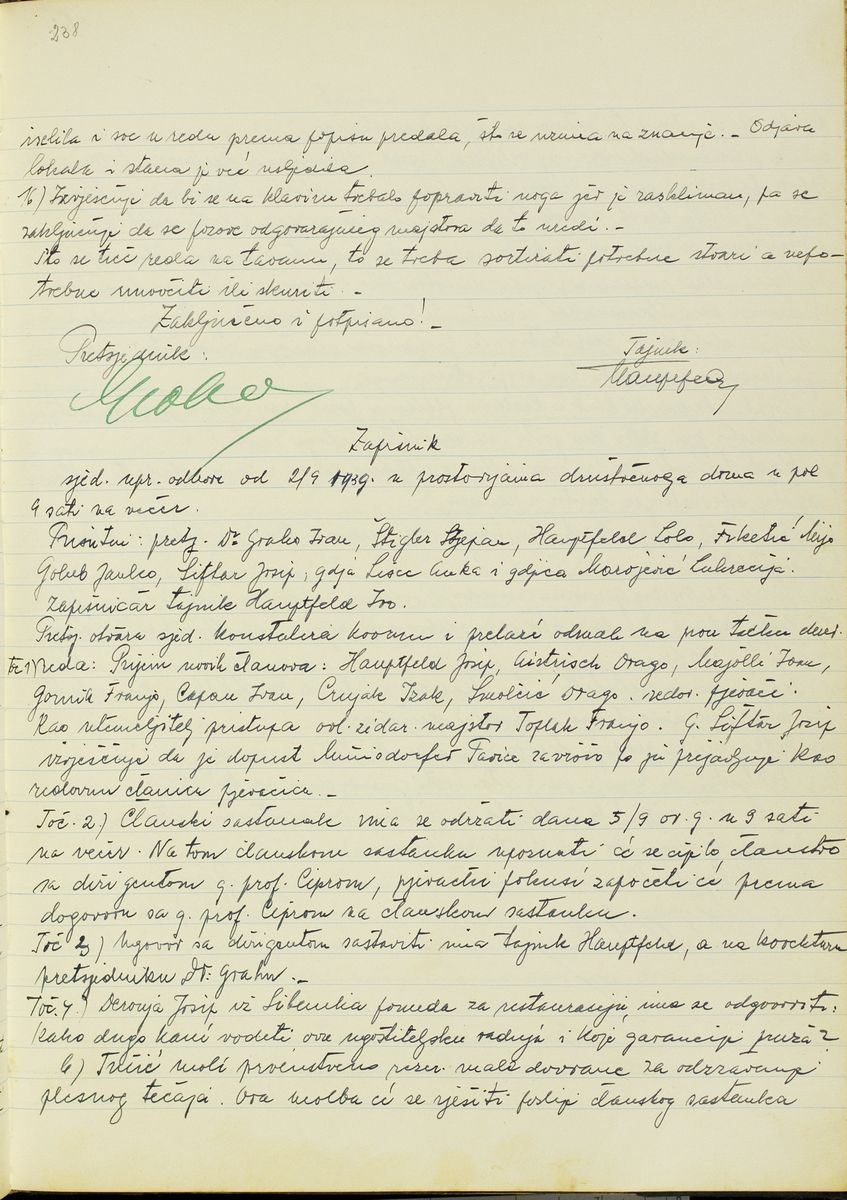 238
iselila i sve u redu prema popisu predala, što se uzima na znanje. – Odjava
lokala i stana je već usljedila.
16) Izvješćuje da bi se na klaviru trebalo popraviti noga jer je rasklimana, pa se
zaključuje da se pozove odgovarajućeg majstora da to uredi. –
Što se tiče reda na tavanu, to se treba sortirati potrebne stvari a nepo–
trebne unovčiti ili skuriti. –
Zaključeno i potpisano! –
Pretsjednik: Tajnik:
Hauptfeld
Zapisnik
sjed. upr. odbora od 2/9 1939. u prostorijama društvenoga doma u pol
9 sati na večer.
Prisutni: pretsj. Dr. Graho Ivan, Štigler Stjepan, Hauptfeld Lolo, Firketić Mijo
Golub Janko, Siftar Josip, gdja Lisec Anka i gdjica Marojević Lukrecija.
Zapisničar tajnik Hauptfeld Ivo.
Pretsj. otvara sjed. konstatira kvorum i prelazi odmah na prvu točku dnev.
toč. 1) reda: Prijem novih članova: Hauptfeld Josip, Drago, Majolli Ivan,
Gornik Franjo, Capan Ivan, Crnjak Izak, Smolčić Drago. redov. pjevači.
Kao utemeljitelj pristupa ovl. zidar. majstor Toplak Franjo. G. Siftar Josip
izvješćuje da je dopust Tavice završio pa ju prijavljuje kao
redovnu članicu pjevačicu. –
Toč. 2.) Članski sastanak ima se održati dana 5/9 ov. g. u 9 sati
na večer. Na tom članskom sastanku upoznati će se cijelo članstvo
sa dirigentom g. prof. Ciprom, pjevački pokusi započeti će prema
dogovoru sa g. prof. Ciprom na članskom sastanku.
Toč 3) Ugovor sa dirigentom sastaviti ima tajnik Hauptfeld, a na korekturu
pretsjedniku Dr. Grahu. –
Toč. 4.) Deronja Josip iz Šibenika ponuda za restauraciju, ima se odgovoriti:
Kako dugo kani voditi ovu ugostiteljsku radnju i koje garancije pruža?
6) Tušić moli prvenstveno rezer. male dvorane za održavanje
plesnog tečaja. Ova molba će se riješiti poslije članskog sastanka